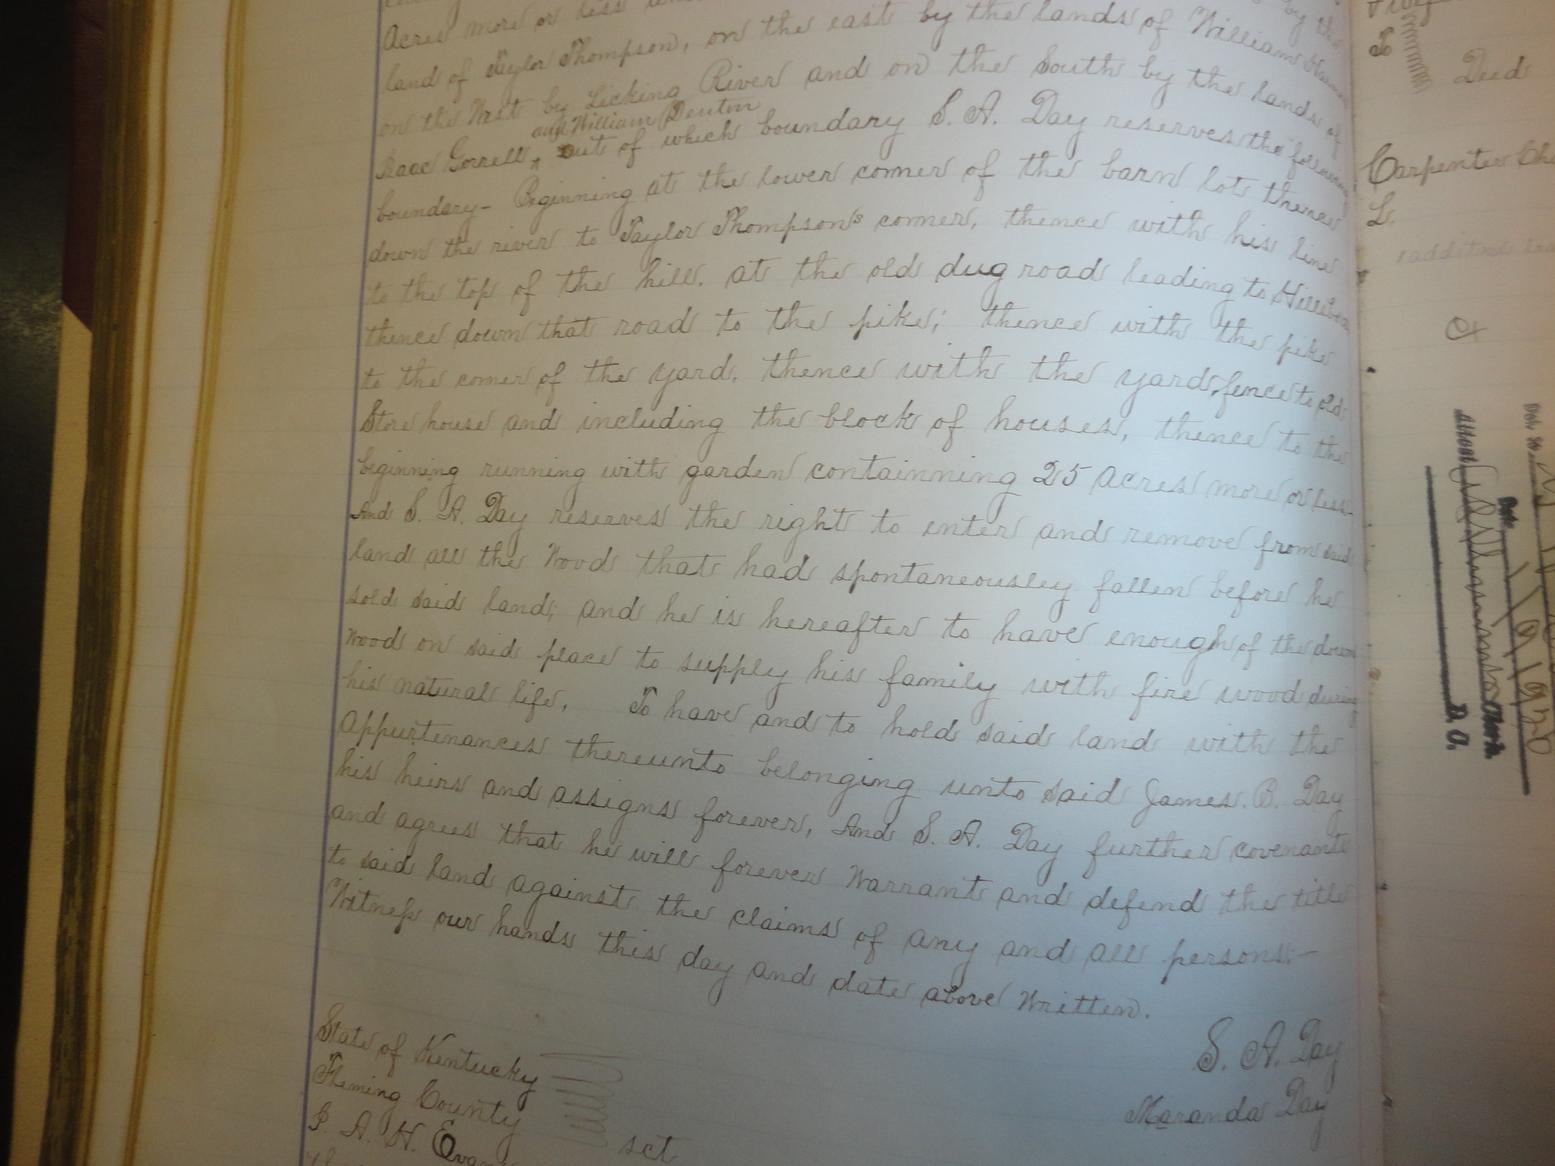 Acres more or less
by the
land of Taylor Thompson, on the east by the lands of William
on the West by Licking River and on the South by the lands of
and William Denton
Isaac Gorrell ^ out of which boundary S. A. Day reserves the following
boundary - Beginning at the lower corner of the barn lot thence
down the river to Taylor Thompson's corner, thence with his line
to the top of the hill. at the old dug road leading to
thence down that road to the pike; thence with the pike
to the corner of the yard. thence with the yard, fence to old
Store house and including the block of houses, thence to the
beginning running with garden containning 25 Acres more or less
And S. A. Day reserves the right to enter and remove from said
land all the Wood that had spontaneousley fallen before he
sold said land; and he is hereafter to have enough of the down
Wood on said place to supply his family with fire wood during
his natural life. To have and to hold said land with the
Appurtenances thereunto belonging unto said James. B. Day
his heirs and assigns forever, And S. A. Day further covenants
and agrees that he will forever Warrant and defend the title
to said land against the claims of any and all persons:-
Witness our hands this day and date above Written.
S. A. Day
Maranda Day
State of Kentucky
Fleming County
sct
I. A. H. Evans
To
Deed
Carpenter
L.
Attest
Clerk
D. C.
Date